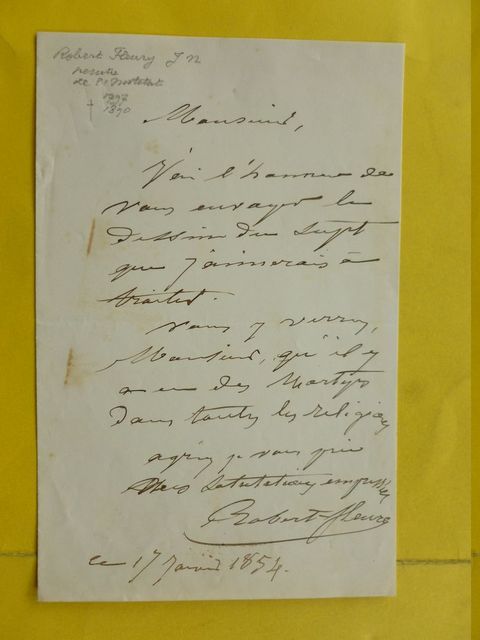 Robert Fleury J N
peintre
de
1797
1890
Monsieur,
J'ai l'honneur de
vous envoyer le
dessin du sujet
que j'aimerais à
traiter.
Vous y verrez,
Monsieur, qu'il y
a eu des Martyrs
dans toutes les religions
agréez je vous prie
mes salutations empressées
Robert-Fleury
ce 17 janvier 1854.